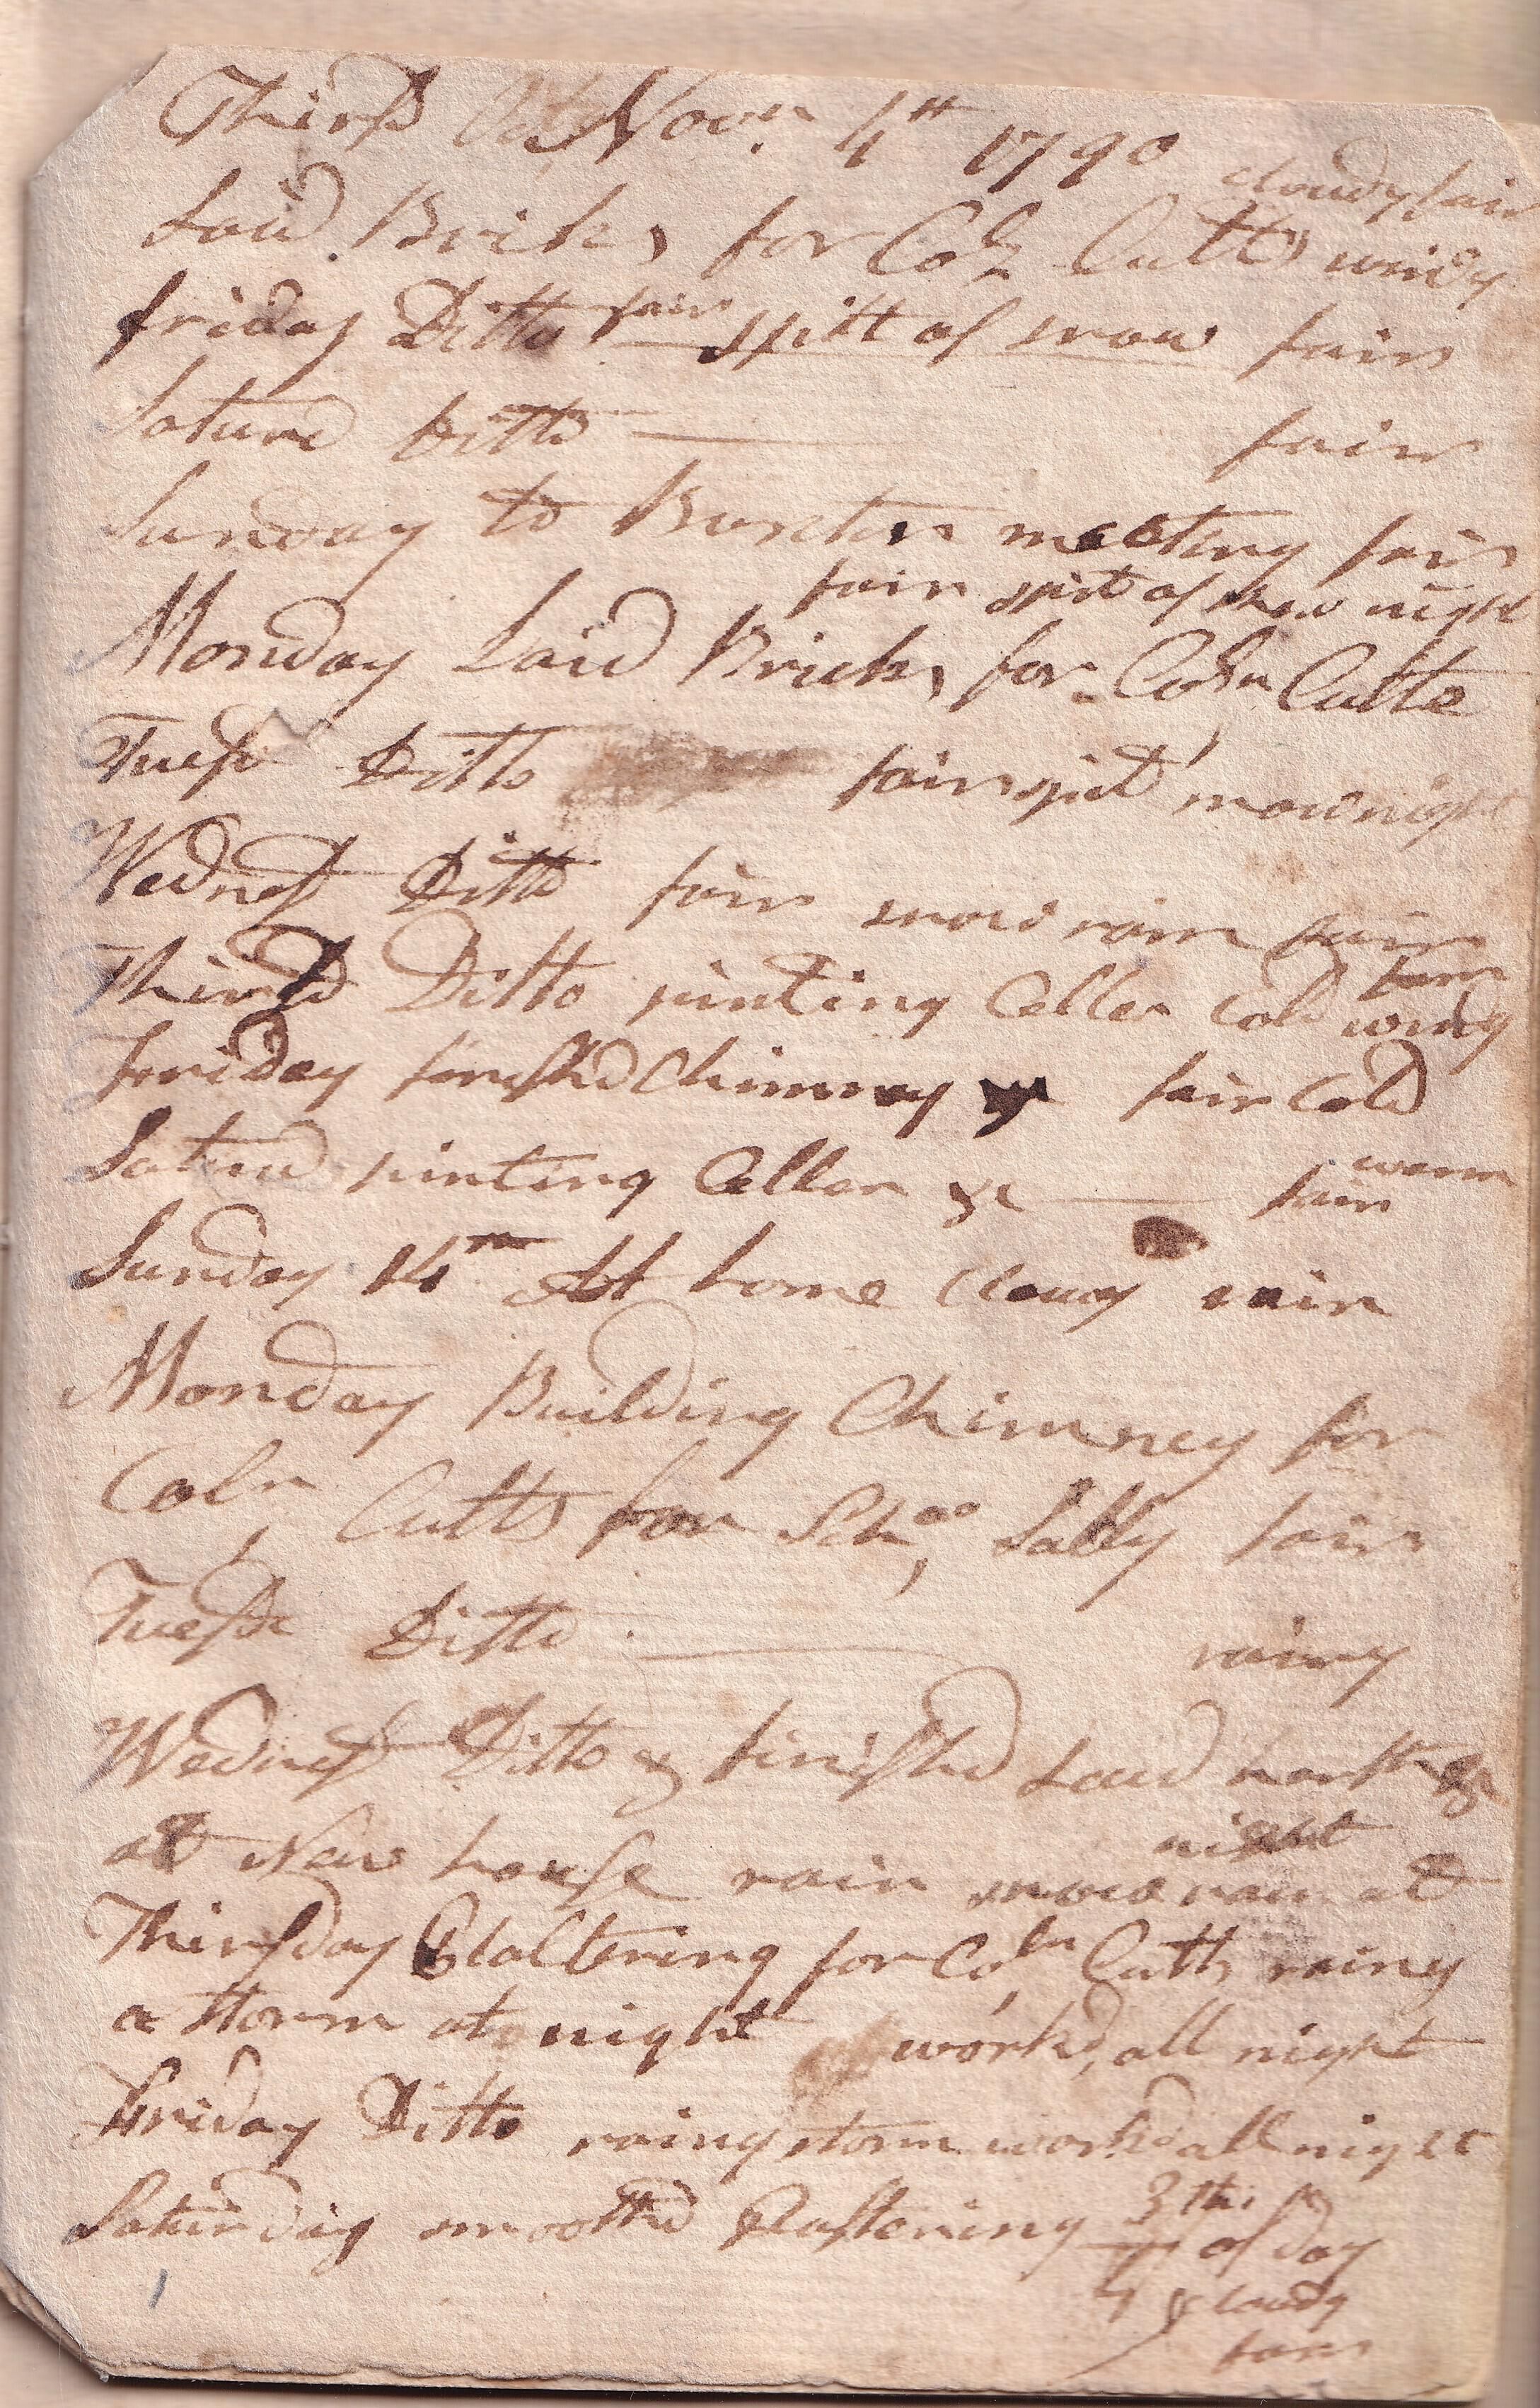 Thirsd Novr 4th 1790 cloudy fair
Laid Bricks for Coln Cutts windy
friday Ditto fair spitt of snow fair
Saturd Ditto fair
Sunday to Buxton meeting fair
fair spit of snow night
Monday Laid Bricks for Coln Cutts
Tuesd Ditto fair spit snow night
Wednesd Ditto fair snow rain fair
Thirsd Ditto pinting Celler Cold windy
Friday finishd Chimney fair Cold
Saturd pinting Celler &c fair warm
Sunday 14th At home Cloudy rain
Monday Building Chimney for
Coln Cutts for Schoo Sally fair
Tuesd Ditto rainy
Wednesd Ditto & finishd Laid harth &c
at New house rain snow rain at night
Thirsday Plaltering for Coln Cutts rainy
a storm at night workd all night
Friday Ditto rainy storm workd all night
Saturday smoothd Plastering 3/4 ths of day
& cloudy
fair